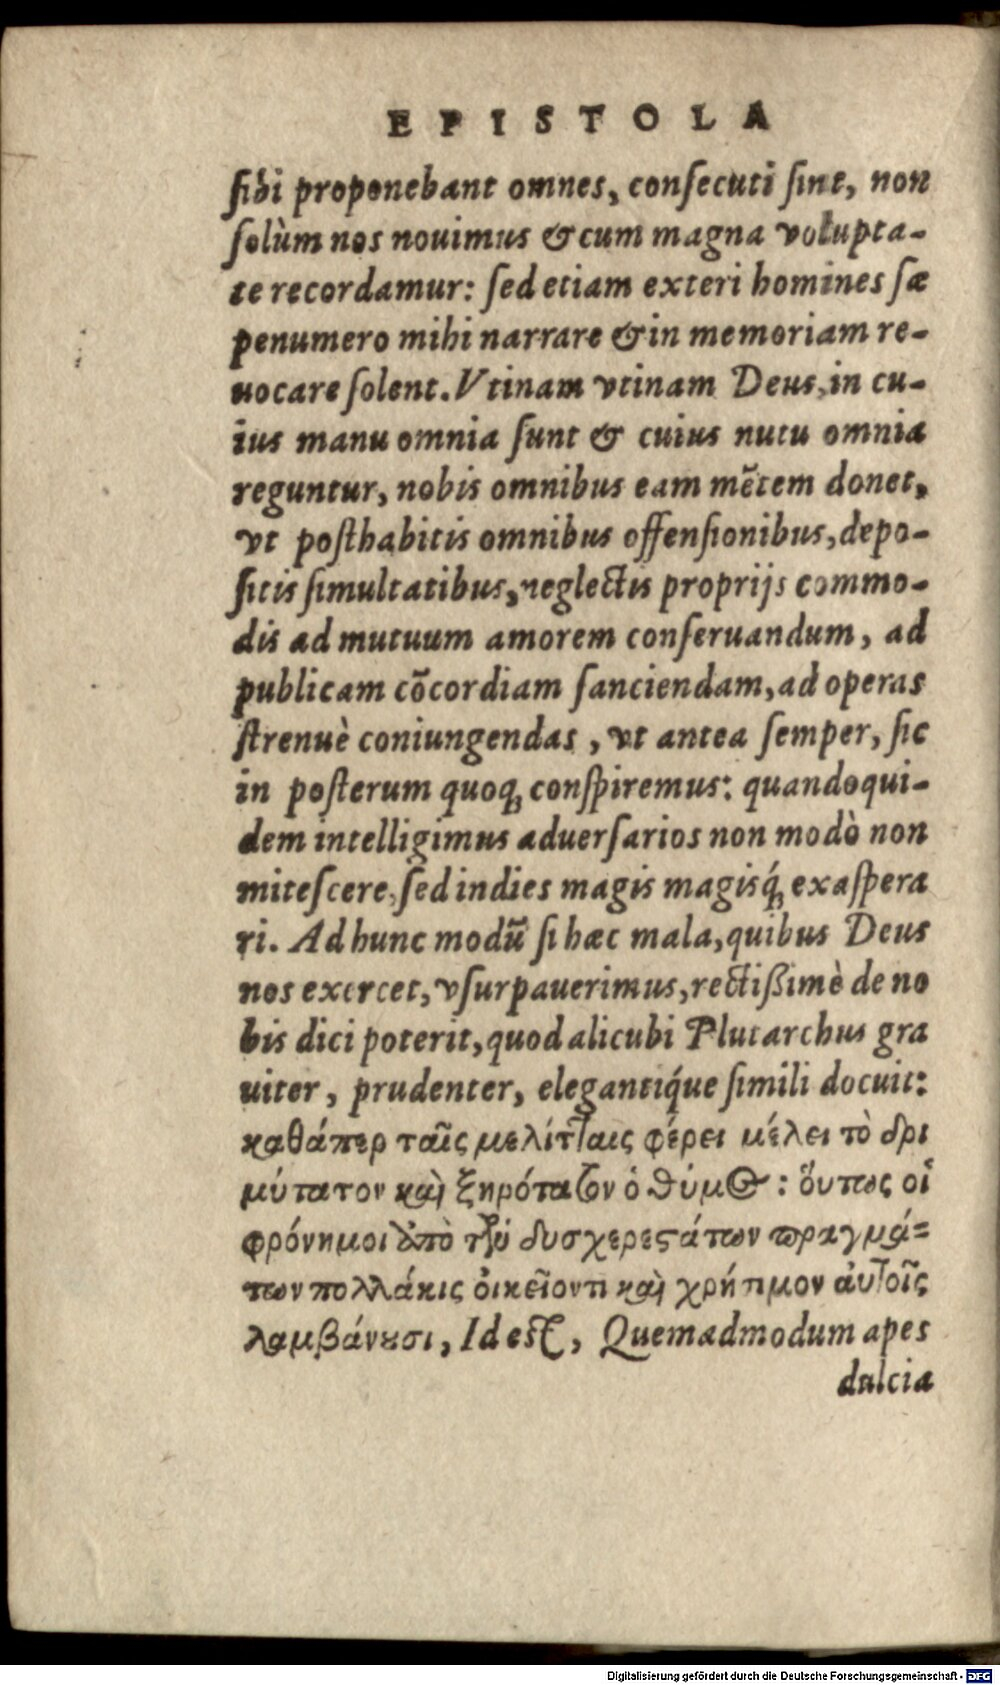 EPISTOLA
sibi proponebant omnes, consecuti sint, non
solùm nos nouimus & cum magna volupta-
te recordamur: sed etiam exteri homines sæ
penumero mihi narrare & in memoriam re-
uocare solent. Vtinam vtinam Deus, in cu-
ius manu omnia sunt & cuius nutu omnia
reguntur, nobis omnibus eam mẽtem donet,
vt posthabitis omnibus offensionibus, depo-
sitis simultatibus, neglectis proprijs commo-
dis ad mutuum amorem conseruandum, ad
publicam cõcordiam sanciendam, ad operas
strenuè coniungendas, vt antea semper, sic
in posterum quoq; conspiremus: quandoqui-
dem intelligimus aduersarios non modò non
mitescere, sed indies magis magisq́; exaspera
ri. Ad hunc modũ si hæc mala, quibus Deus
nos exercet, vsurpauerimus, rectißimè de no
bis dici poterit, quod alicubi Plutarchus gra
uiter, prudenter, elegantiq́ue simili docuit:
καθάπερ ταῖς μελίτταις φέρει μέλει τὸ δρι
μύτατον καὶ ξηρότατον ὁ θύμος: οὕτως οἱ
φρόνημοι ἀπὸ τῶν δυσχερεςάτων πραγμά=
των πολλάκις οἰκεῖόν τι καὶ χρήτιμον αὐτοῖς
λαμβάνουσι, Id est, Quemadmodum apes
dulcia
Digitalisierung gefördert durch die Deutsche Forschungsgemeinschaft - DFG